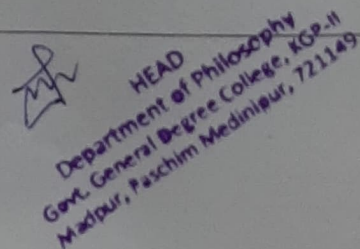 HEAD
Department of Philosophy
Govt. General Degree College, KGP-II
Madpur, Paschim Medinipur, 721149